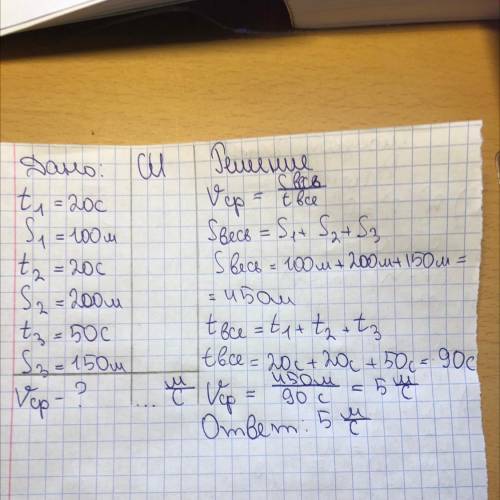 Дано: СИ Решение
t₁ = 20с
S₁ = 100м
t₂ = 20с
S₂ = 200м
t₃ = 50с
S₃ = 150м
Vср - ? ... м/с
Vср = Sвсв/tвсе
Sвесь = S₁ + S₂ + S₃
Sвесь = 100м + 200м + 150м =
= 450м
tвсе = t₁ + t₂ + t₃
tвсе = 20с + 20с + 50с = 90с
Vср = 450м/90 с = 5 м/с
Ответ: 5 м/с